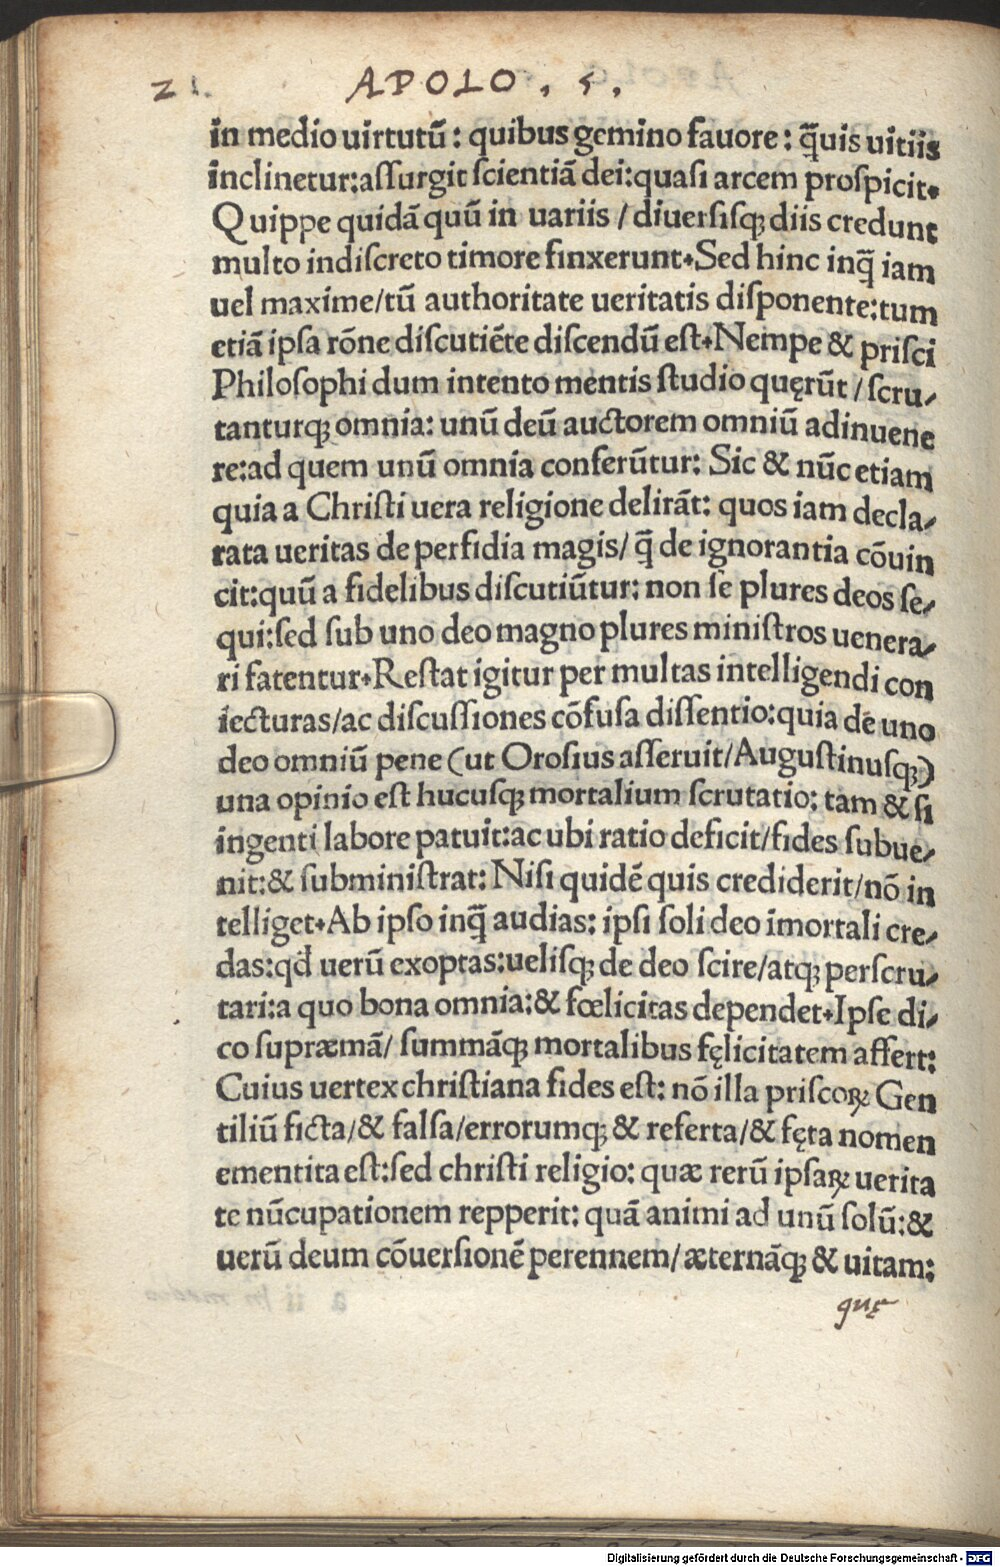 21. APOLO. 5.
in medio uirtutū: quibus gemino fauore: q̄uis uitiis
inclinetur:assurgit scientiā dei:quasi arcem prospicit.
Quippe quidā quū in uariis / diuersisqꝫ diis credunt
multo indiscreto timore finxerunt. Sed hinc inq̄ iam
uel maxime/tū authoritate ueritatis disponente:tum
etiā ipsa rōne discutiēte discendū est. Nempe & prisci
Philosophi dum intento mentis studio quęrūt / scru-
tanturqꝫ omnia: unū deū auctorem omniū adinuene
re:ad quem unū omnia conferūtur: Sic & nūc etiam
quia a Christi uera religione delirāt: quos iam decla-
rata ueritas de perfidia magis/ q̄ de ignorantia cōuin
cit:quū a fidelibus discutiūtur: non se plures deos se-
qui:sed sub uno deo magno plures ministros uenera-
ri fatentur. Restat igitur per multas intelligendi con
iecturas/ac discussiones cōfusa dissentio:quia de uno
deo omniū pene (ut Orosius asseruit/Augustinusqꝫ)
una opinio est hucusqꝫ mortalium scrutatio: tam & si
ingenti labore patuit:ac ubi ratio deficit/fides subue-
nit:& subministrat: Nisi quidē quis crediderit/nō in
telliget. Ab ipso inq̄ audias: ipsi soli deo imortali cre-
das:qđ uerū exoptas:uelisqꝫ de deo scire/atqꝫ perscru-
tari:a quo bona omnia:& fœlicitas dependet. Ipse di-
co supræmā/ summāqꝫ mortalibus fęlicitatem affert:
Cuius uertex christiana fides est: nō illa priscoꝝ Gen
tiliū ficta/& falsa/errorumqꝫ & referta/& fęta nomen
ementita est:sed christi religio: quæ rerū ipsaꝝ uerita
te nūcupationem repperit: quā animi ad unū solū:&
uerū deum cōuersionē perennem/æternāqꝫ & uitam:
quę
Digitalisierung gefördert durch die Deutsche Forschungsgemeinschaft - DFG